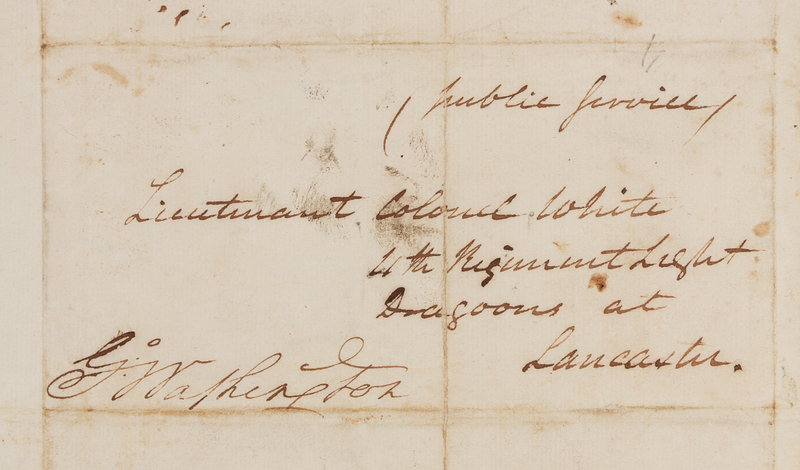 (public Service)
Lieutenant Colonel White
4th Regiment Light
Dragoons at
Lancaster.
Go Washington